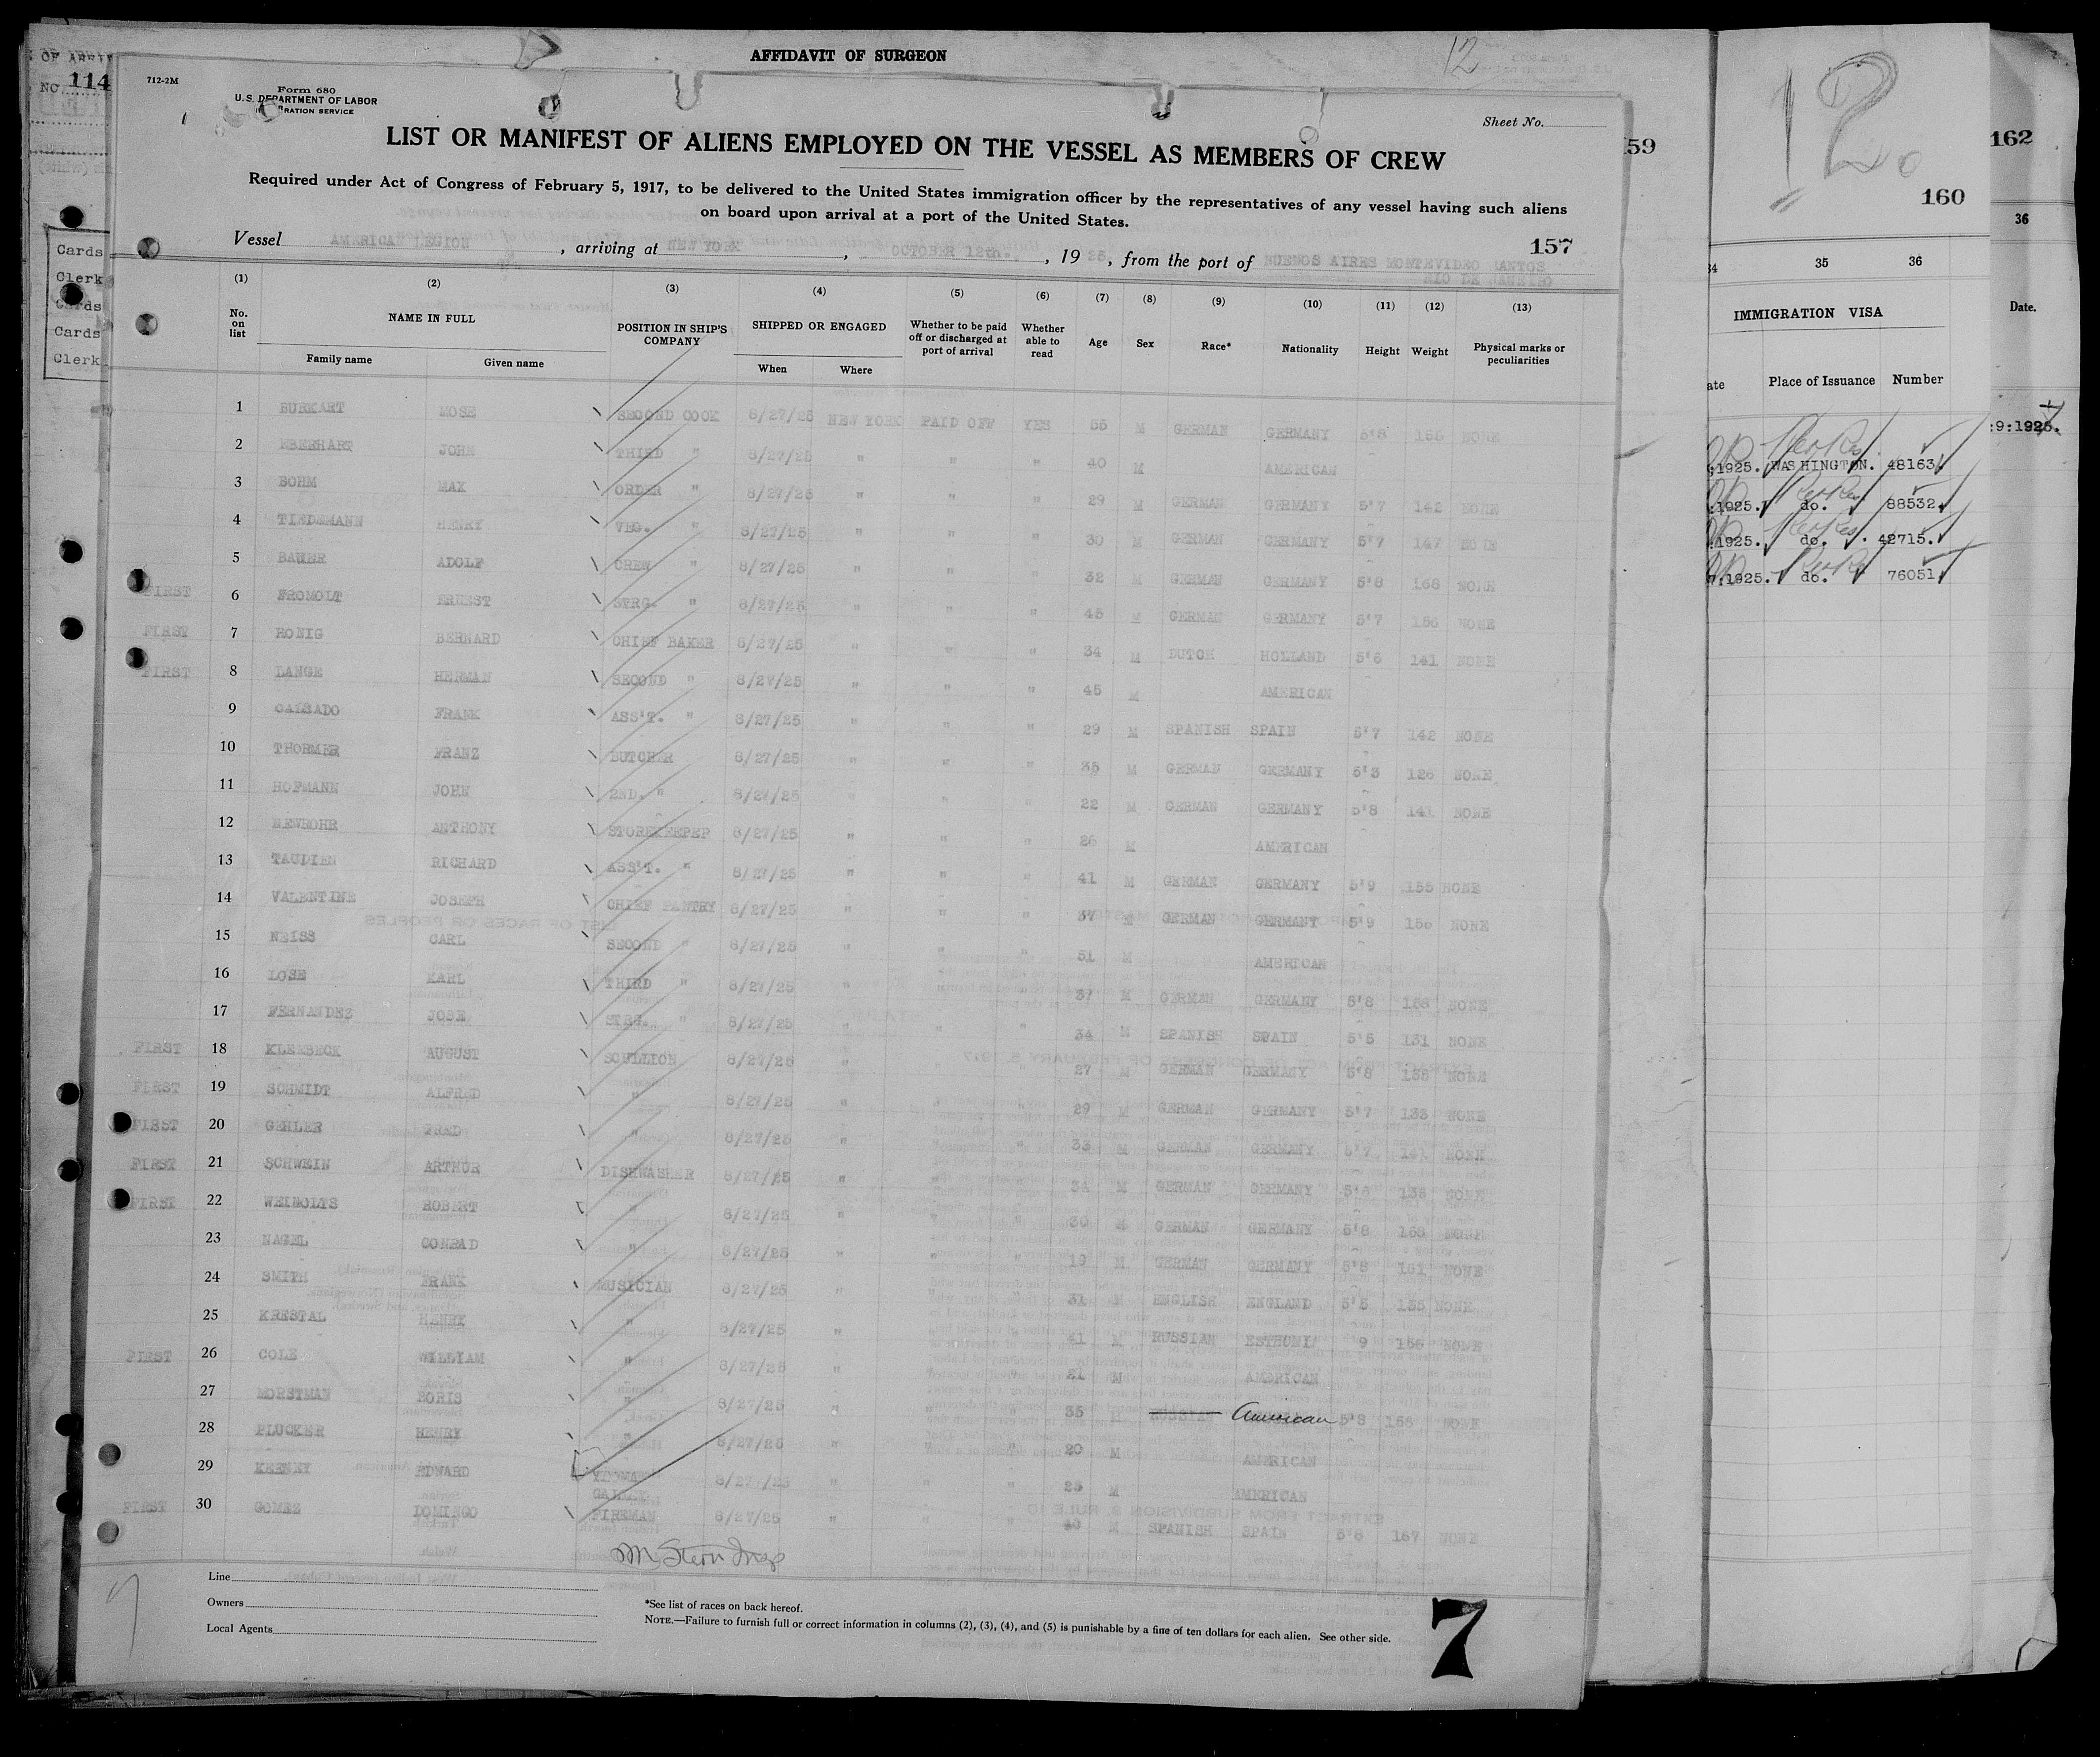 AFFIDAVIT OF SURGEON
12
OF
NO 114
712-2M
Form 680
U.S. DEPARTMENT OF LABOR
RATION SERVICE
Sheet No.
LIST OR MANIFEST OF ALIENS EMPLOYED ON THE VESSEL AS MEMBERS OF CREW
Required under Act of Congress of February 5, 1917, to be delivered to the United States immigration officer by the representatives of any vessel having such aliens
on board upon arrival at a port of the United States.
157
Vessel AMERICAN LEGION, arriving at NEW YORK, OCTOBER 12th., 1925, from the port of BUENOS AIRES MONTEVIDEO SANTOS
RIO DE JANEIRO
(1) (2) (3) (4) (5) (6) (7) (8) (9) (10) (11) (12) (13)
No. on list NAME IN FULL Family name Given name POSITION IN SHIP'S COMPANY SHIPPED OR ENGAGED When Where Whether to be paid off or discharged at port of arrival Whether able to read Age Sex Race* Nationality Height Weight Physical marks or peculiarities
1 BURKART MOSE SECOND COOK 8/27/25 NEW YORK PAID OFF YES 55 M GERMAN GERMANY 5'8 155 NONE
2 EBERHART JOHN THIRD " 8/27/25 " " " 40 M AMERICAN
3 BOHM MAX ORDER " 8/27/25 " " " 29 M GERMAN GERMANY 5'7 142 NONE
4 TIEDEMANN HENRY VEG. " 8/27/25 " " " 30 M GERMAN GERMANY 5'7 147 NONE
5 BAUER ADOLF CREW " 8/27/25 " " " 32 M GERMAN GERMANY 5'8 168 NONE
FIRST 6 FROMOLT ERNEST STRG. " 8/27/25 " " " 45 M GERMAN GERMANY 5'7 156 NONE
FIRST 7 HONIG BERNARD CHIEF BAKER 8/27/25 " " " 34 M DUTCH HOLLAND 5'6 141 NONE
FIRST 8 LANGE HERMAN SECOND " 8/27/25 " " " 45 M AMERICAN
9 CAISADO FRANK ASS'T. " 8/27/25 " " " 29 M SPANISH SPAIN 5'7 142 NONE
10 THORMER FRANZ BUTCHER 8/27/25 " " " 35 M GERMAN GERMANY 5'3 126 NONE
11 HOFMANN JOHN 2ND. " 8/27/25 " " " 22 M GERMAN GERMANY 5'8 141 NONE
12 NEWROHR ANTHONY STOREKEEPER 8/27/25 " " " 26 M AMERICAN
13 TAUDIEN RICHARD ASS'T. " 8/27/25 " " " 41 M GERMAN GERMANY 5'9 155 NONE
14 VALENTINE JOSEPH CHIEF PANTRY 8/27/25 " " " 37 M GERMAN GERMANY 5'9 156 NONE
15 NEISS CARL SECOND " 8/27/25 " " " 51 M AMERICAN
16 LOSE KARL THIRD " 8/27/25 " " " 37 M GERMAN GERMANY 5'8 158 NONE
17 FERNANDEZ JOSE STRG. " 8/27/25 " " " 34 M SPANISH SPAIN 5'5 131 NONE
FIRST 18 KLEMBECK AUGUST SCULLION 8/27/25 " " " 27 M GERMAN GERMANY 5'8 NONE
FIRST 19 SCHMIDT ALFRED " 8/27/25 " " " 29 M GERMAN GERMANY 5'7 133 NONE
FIRST 20 GEHLER FRED " 8/27/25 " " " 33 M GERMAN GERMANY 5'7 141 NONE
FIRST 21 SCHWEIN ARTHUR DISHWASHER 8/27/25 " " " 34 M GERMAN GERMANY 5'6 138 NONE
FIRST 22 ROBERT " 8/27/25 " " " 30 M GERMAN GERMANY 5'8 NONE
23 NAGEL CONRAD " 8/27/25 " " " 19 M GERMAN GERMANY 5'8 161 NONE
24 SMITH FRANK MUSICIAN 8/27/25 " " " 31 M ENGLISH ENGLAND 5'5 135 NONE
25 KRESTAL HENRY " 8/27/25 " " " 41 M RUSSIAN ESTHONIA 9 156 NONE
FIRST 26 COLE WILLIAM " 8/27/25 " " " 21 M AMERICAN
27 MORSTMAN BORIS " 8/27/25 " " " 35 M RUSSIAN American 5'8 156 NONE
28 PLUCKER HENRY " 8/27/25 " " " 20 M AMERICAN
29 KEENEY EDWARD 8/27/25 " " " 23 M AMERICAN
FIRST 30 GOMEZ DOMINGO FIREMAN 8/27/25 " " " M SPANISH SPAIN 5'6 167 NONE
M. Stern Insp
Line
Owners
Local Agents
*See list of races on back hereof.
NOTE.—Failure to furnish full or correct information in columns (2), (3), (4), and (5) is punishable by a fine of ten dollars for each alien. See other side.
7
Cards
Clerk
Cards
Cards
Clerk
59
12
160
34 35 36
IMMIGRATION VISA
ate Place of Issuance Number
1925. WASHINGTON. 48163
1925. do. 88532
1925. do. 42715.
1925. do. 76051
162
36
Date.
:9:1925.